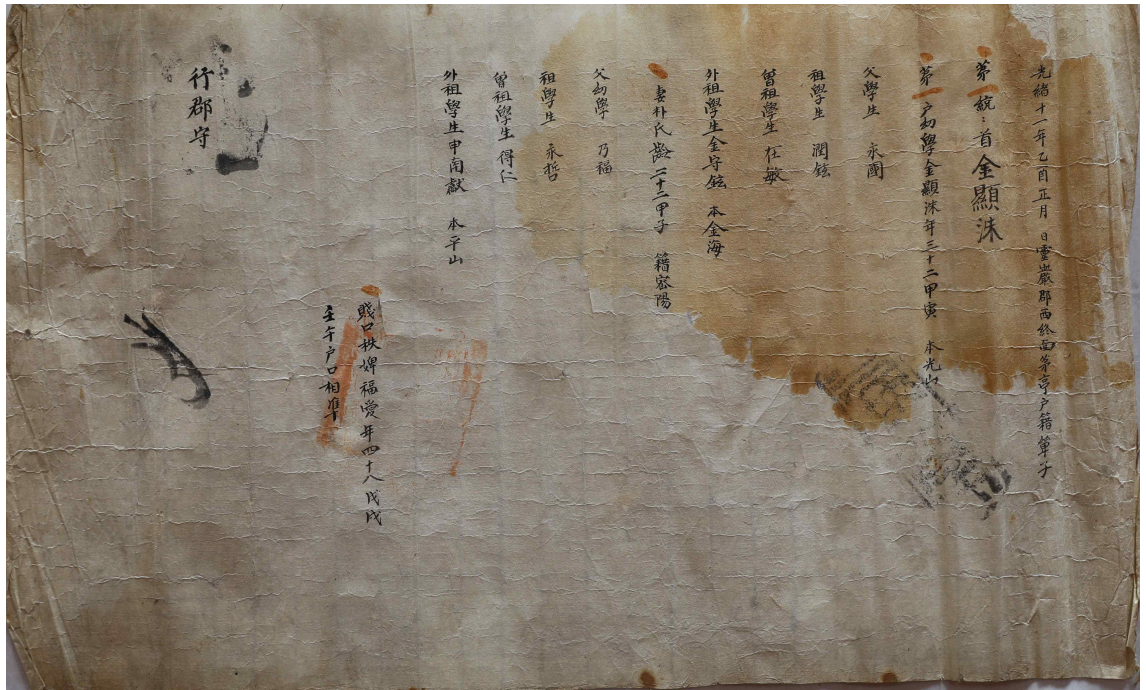 光緖十一年乙酉正月　日靈巖郡西終面茅亭戶籍單子
第一統：首金顯洙
第一戶幼學金顯洙年三十二甲寅　本光山
父學生　永國
祖學生　潤鉉
曾祖學生　在敏
外祖學生金守鉉　本金海
妻朴氏齡二十二甲子　籍密陽
父幼學　乃福
祖學生　永哲
曾祖學生　得仁
外祖學生申南獻　本平山
賤口秩婢福愛年四十八戊戌
壬午戶口相準
行郡守